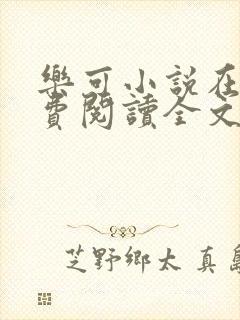 樂可小説在
費閱讀全文
芝野鄉太真島